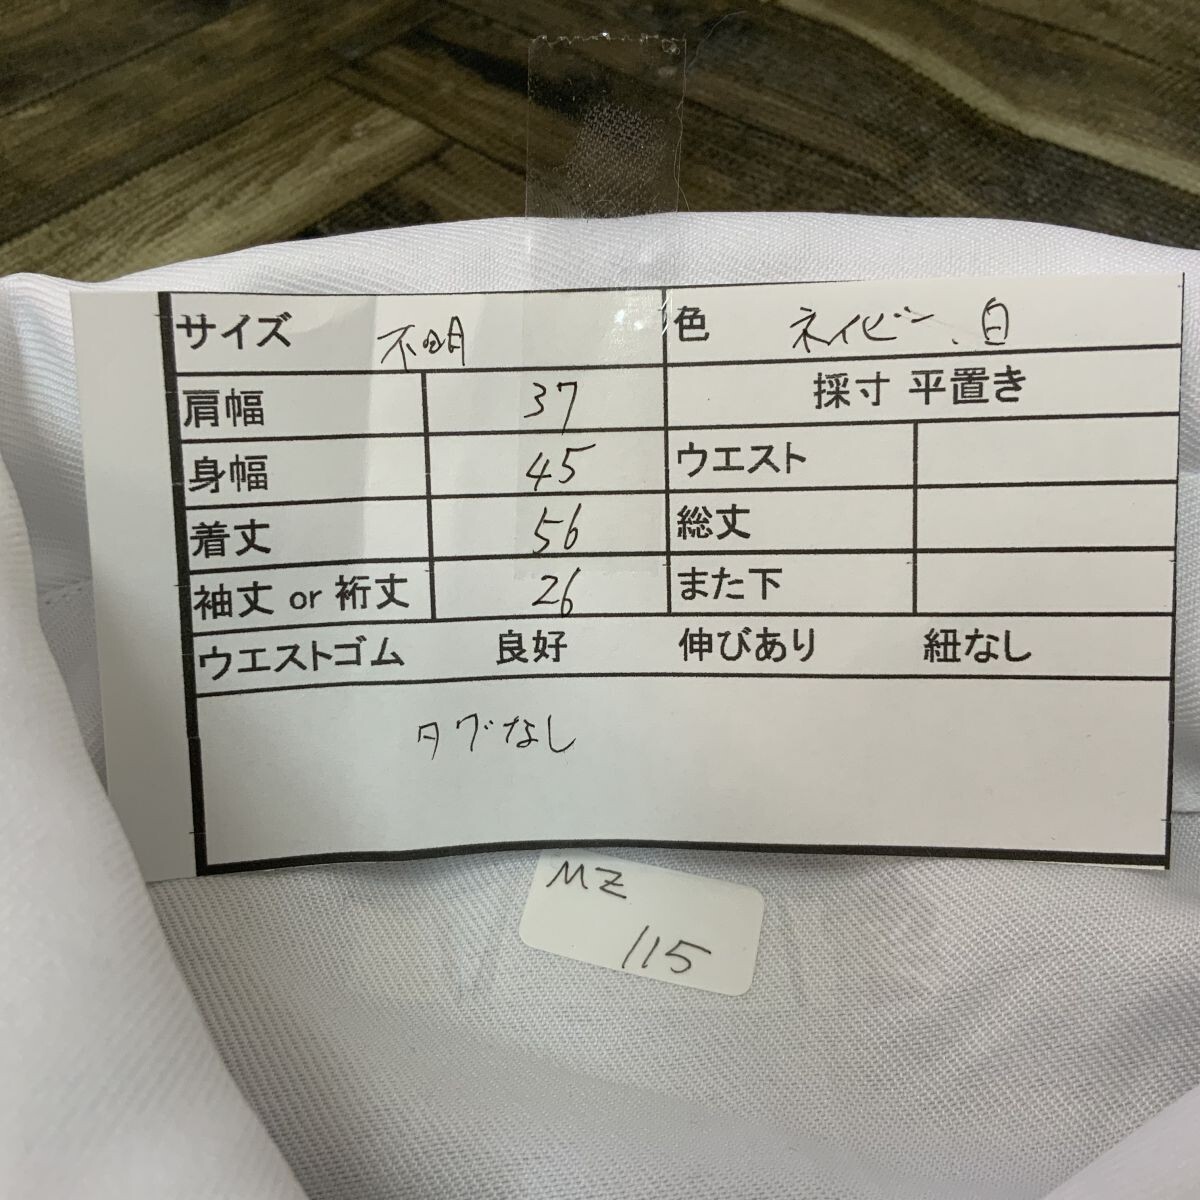 サイズ 不明 色 ネイビー、白
肩幅 37 採寸 平置き
身幅 45 ウエスト
着丈 56 総丈
袖丈 or 裄丈 26 また下
ウエストゴム 良好 伸びあり 紐なし
タグなし
MZ
115